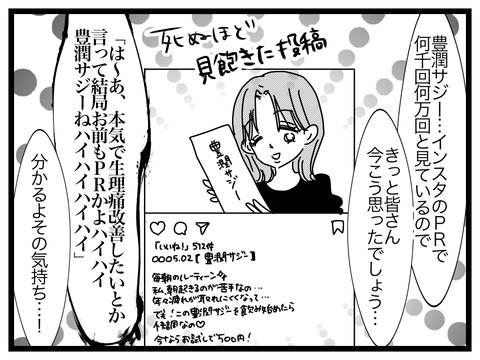 豊潤サジー!…インスタのPRで
何千回何万回と見ているので
きっと皆さん
今こう思ったでしょう…
死ぬほど
見飽きた投稿
豊潤サジー
「いいね!」512件
0005.02【豊潤サジー】
毎朝のルーティーン
私、朝起きるのが苦手なの…
年々疲れが取れにくくなって…
でも!この豊潤サジーを飲み始めたら
不調なの♡
今ならお試しで500円!
「は〜あ、本気で生理痛改善したいとか
言って結局お前もPRかよハイハイ
豊潤サジーねハイハイハイハイ」
分かるよその気持ち…!